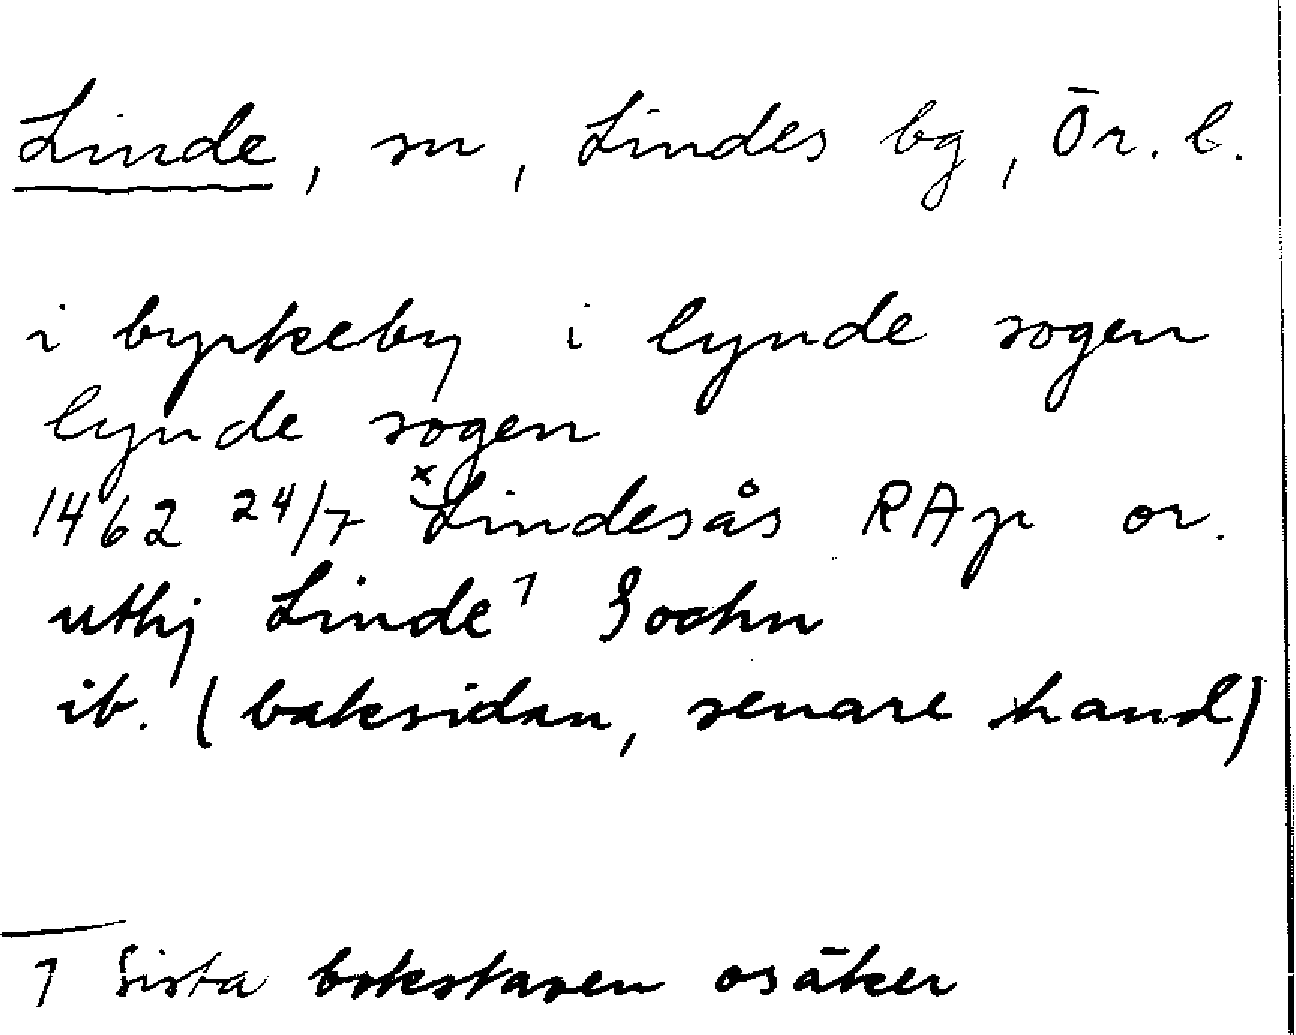 Linde, sn, Lindes bg, Ör. l.
i byrkeby i lynde sogen
lynde sogen
1462 24/7 ˣLindesås RAp or.
uthj Linde¹ Sochn
ib. (baksidan, senare hand)
1 Sista bokstaven osäker